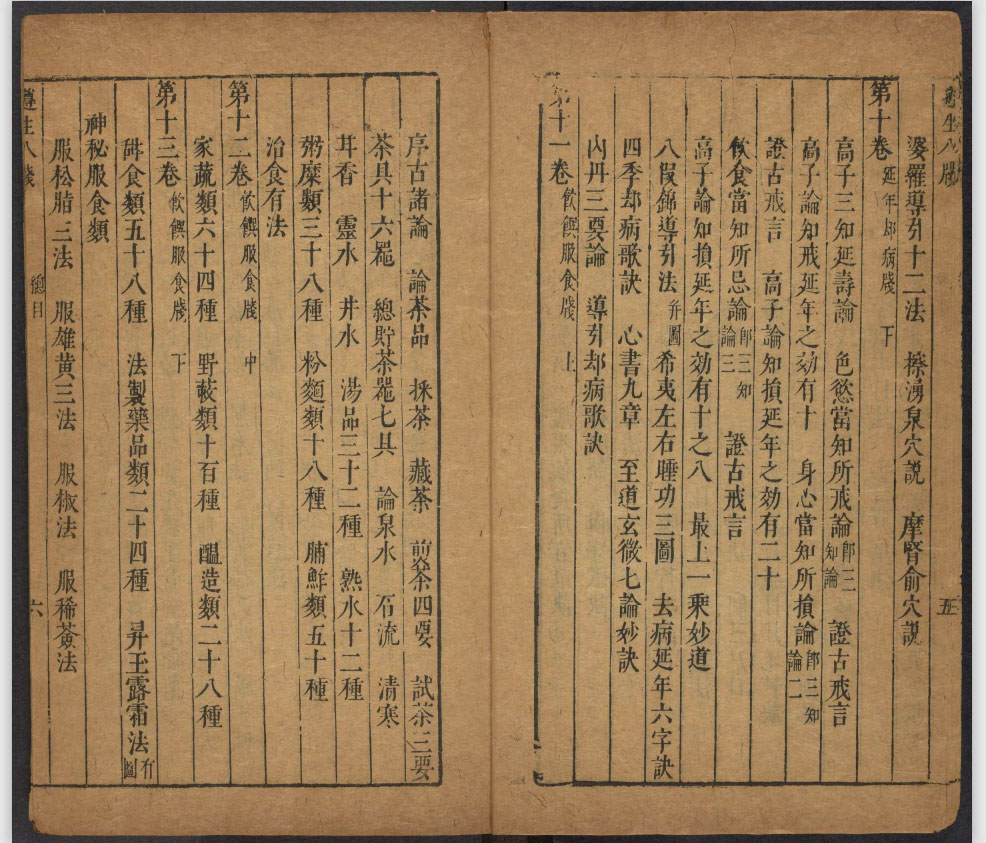 遵生八牋
五
婆羅導引十二法 擦湧泉穴說 摩腎俞穴說
第十卷 延年却病牋 下
高子三知延壽論 色慾當知所戒論 即三知論 證古戒言
高子論知戒延年之効有十 身心當知所損論 即三知論二
證古戒言 高子論知損延年之効有二十
飲食當知所忌論 即三知論三 證古戒言
高子論知損延年之効有十之八 最上一乘妙道
八段錦導引法 并圖 希夷左右睡功三圖 去病延年六字訣
四季却病歌訣 心書九章 至道玄微七論妙訣
內丹三要論 導引却病歌訣
第十一卷 飲饌服食牋 上
序古諸論 論茶品 採茶 藏茶 煎茶四要 試茶三要
茶具十六器 總貯茶器七具 論泉水 石流 清寒
甘香 靈水 井水 湯品三十二種 熟水十二種
粥糜類三十八種 粉麵類十八種 脯鮓類五十種
治食有法
第十二卷 飲饌服食牋 中
家蔬類六十四種 野蔌類十百種 醞造類二十八種
第十三卷 飲饌服食牋 下
甜食類五十八種 法製藥品類二十四種 昇玉露霜法 有圖
神秘服食類
服松脂三法 服雄黃三法 服椒法 服稀薟法
遵生八牋
總目
六